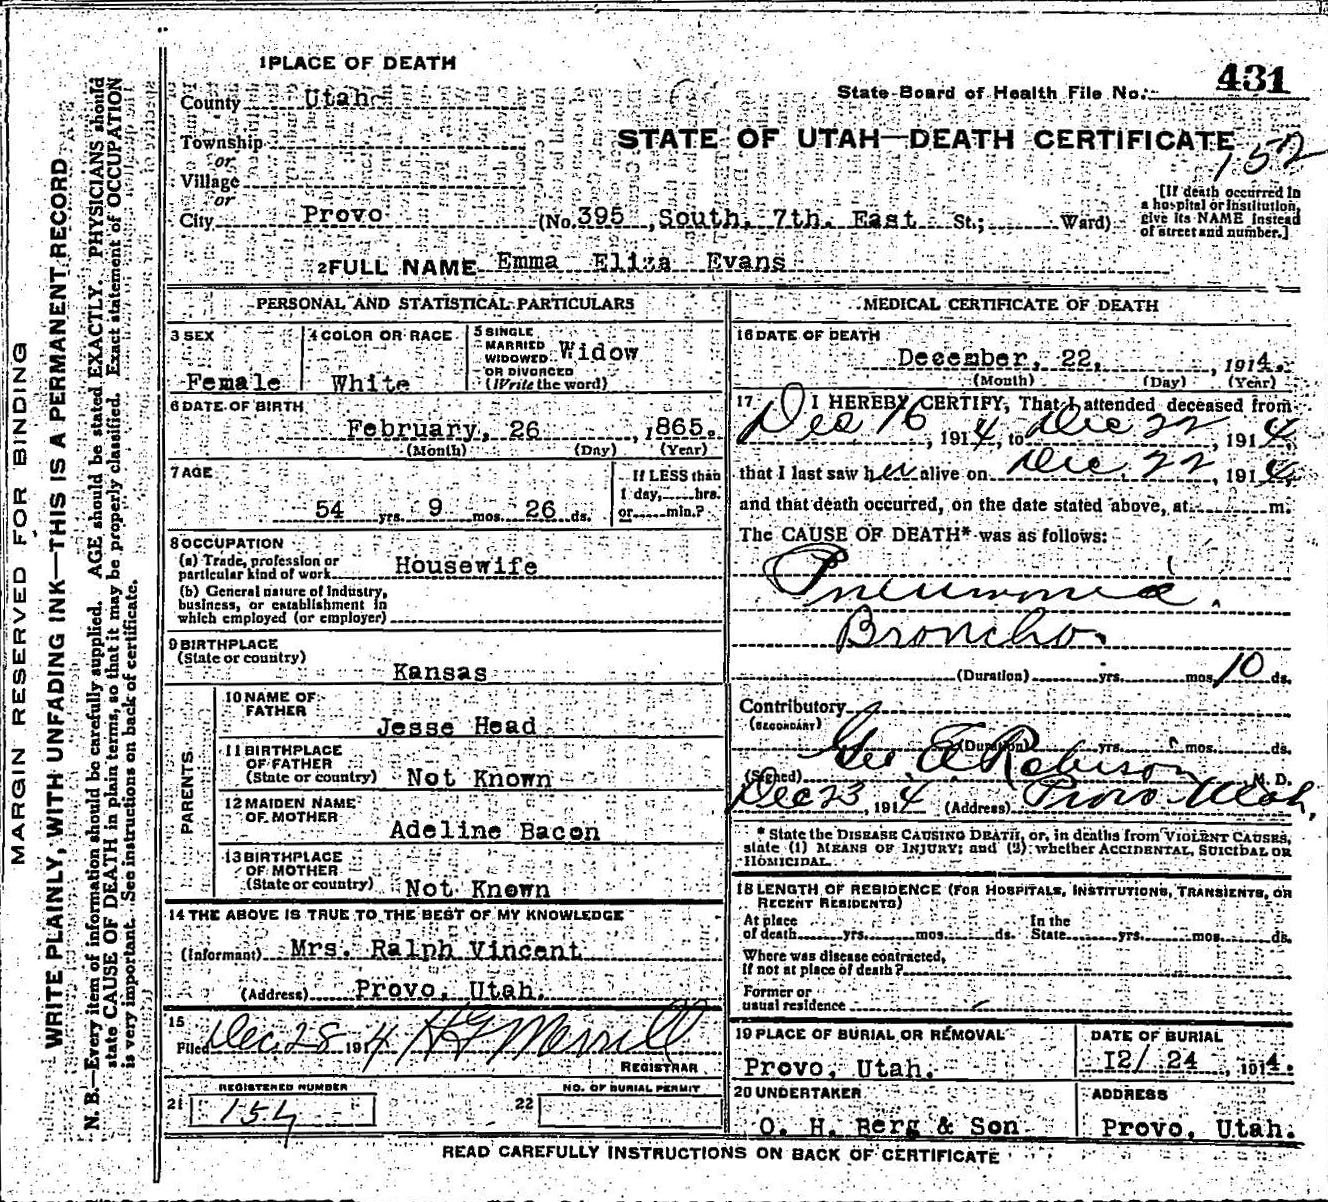 MARGIN RESERVED FOR BINDING
WRITE PLAINLY, WITH UNFADING INK—THIS IS A PERMANENT RECORD
N. B.—Every item of information should be carefully supplied. AGE should be stated EXACTLY. PHYSICIANS should
state CAUSE OF DEATH in plain terms, so that it may be properly classified. Exact statement of OCCUPATION
is very important. See instructions on back of certificate.
1 PLACE OF DEATH
State Board of Health File No. 431
County Utah
STATE OF UTAH—DEATH CERTIFICATE
152
Township
or
Village
or
City Provo (No. 395, South, 7th. East St.; Ward)
[If death occurred in
a hospital or institution,
give its NAME instead
of street and number.]
2 FULL NAME Emma Eliza Evans
PERSONAL AND STATISTICAL PARTICULARS
3 SEX
Female
4 COLOR OR RACE
White
5 SINGLE
MARRIED
WIDOWED Widow
OR DIVORCED
(Write the word)
6 DATE OF BIRTH
February, 26, 1865.
(Month) (Day) (Year)
7 AGE
54 yrs. 9 mos. 26 ds.
If LESS than
1 day, hrs.
or min.?
8 OCCUPATION
(a) Trade, profession or
particular kind of work Housewife
(b) General nature of Industry,
business, or establishment in
which employed (or employer)
9 BIRTHPLACE
(State or country)
Kansas
PARENTS
10 NAME OF
FATHER
Jesse Head
11 BIRTHPLACE
OF FATHER
(State or country) Not Known
12 MAIDEN NAME
OF MOTHER
Adeline Bacon
13 BIRTHPLACE
OF MOTHER
(State or country) Not Known
14 THE ABOVE IS TRUE TO THE BEST OF MY KNOWLEDGE
(Informant) Mrs. Ralph Vincent
(Address) Provo, Utah.
15
Filed Dec. 28 1914 H F Merrill
REGISTRAR
REGISTERED NUMBER
21 154
NO. OF BURIAL PERMIT
22
MEDICAL CERTIFICATE OF DEATH
16 DATE OF DEATH
December, 22, , 1914.
(Month) (Day) (Year)
17 I HEREBY CERTIFY, That I attended deceased from
Dec 16, 1914, to Dec 22, 1914,
that I last saw her alive on Dec. 22, 1914,
and that death occurred, on the date stated above, at m.
The CAUSE OF DEATH* was as follows:
Pneumonia.
Broncho.
(Duration) yrs. mos. 10 ds.
Contributory
(SECONDARY)
(Duration) yrs. mos. ds.
(Signed) Geo. E. Robison M. D.
Dec 23, 1914 (Address) Provo Utah,
* State the DISEASE CAUSING DEATH, or, in deaths from VIOLENT CAUSES,
state (1) MEANS OF INJURY; and (2) whether ACCIDENTAL, SUICIDAL OR
HOMICIDAL.
18 LENGTH OF RESIDENCE (FOR HOSPITALS, INSTITUTIONS, TRANSIENTS, OR
RECENT RESIDENTS)
At place
of death yrs. mos. ds.
In the
State yrs. mos. ds.
Where was disease contracted,
If not at place of death?
Former or
usual residence
19 PLACE OF BURIAL OR REMOVAL
Provo, Utah.
DATE OF BURIAL
12/ 24, 1914.
20 UNDERTAKER
O. H. Berg & Son
ADDRESS
Provo, Utah.
READ CAREFULLY INSTRUCTIONS ON BACK OF CERTIFICATE